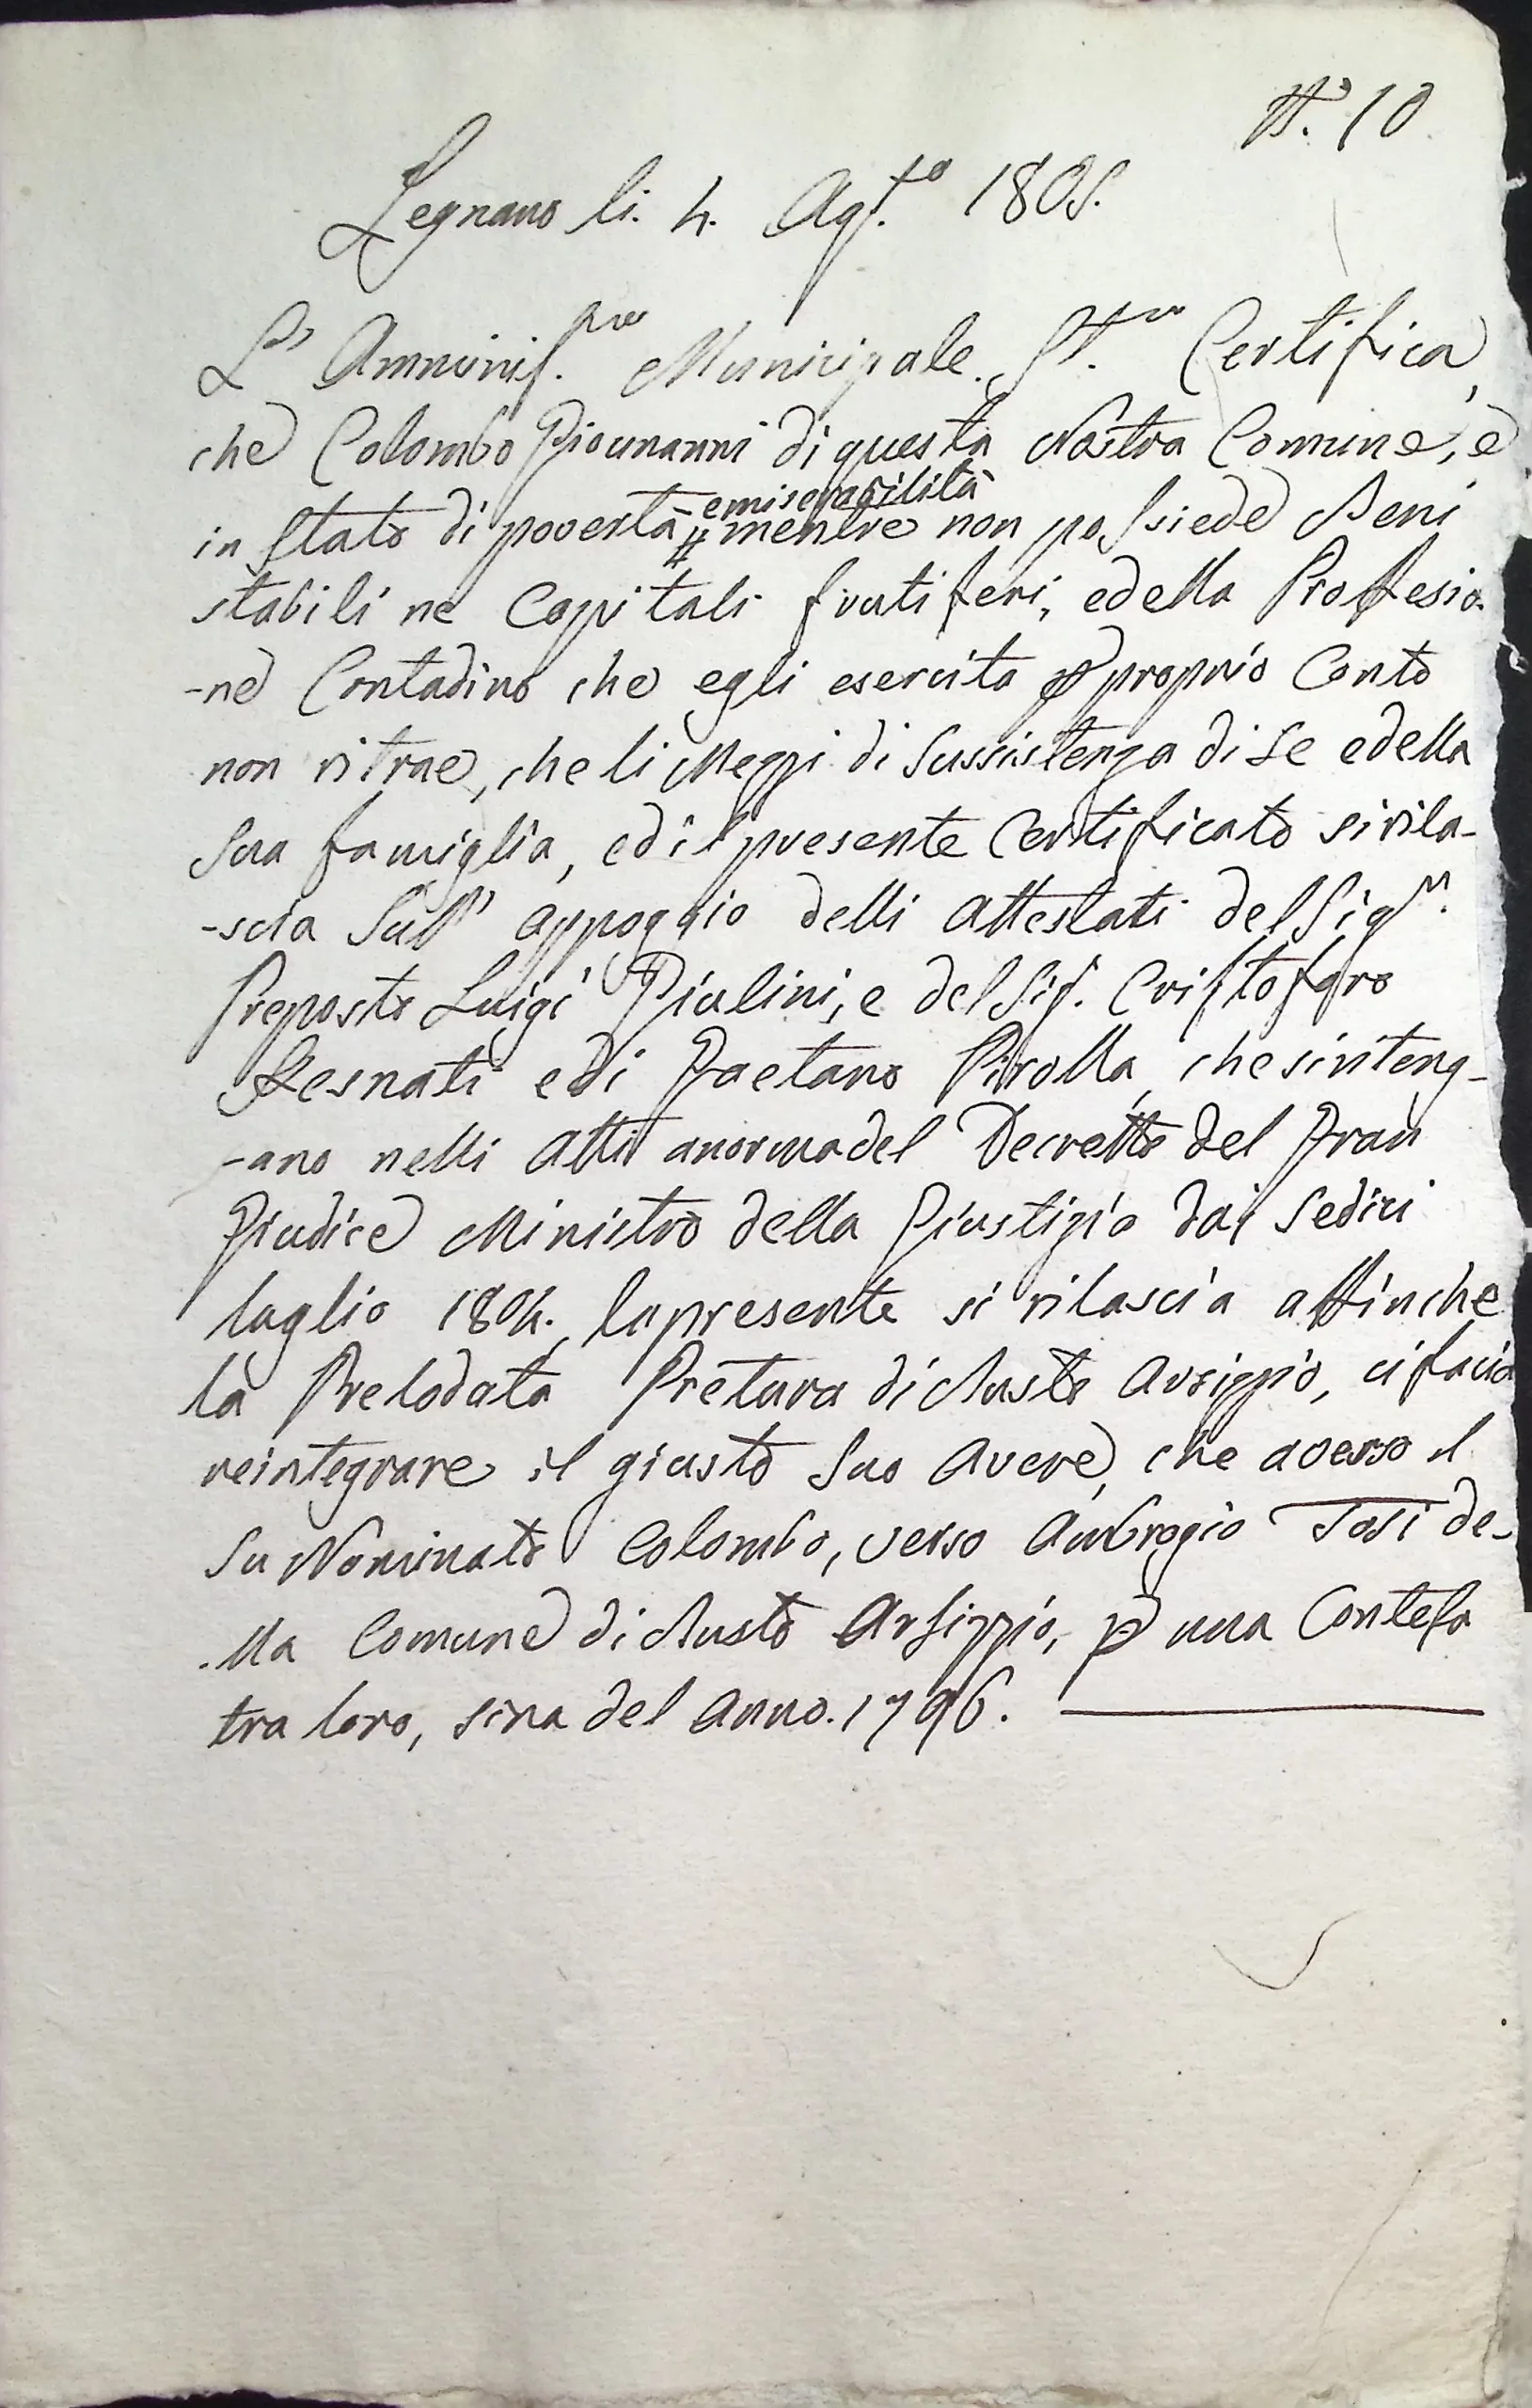 N.º 10
Legnano li. 4. Agt.º 1805.
L' Amminis.ne Municipale. Certifica,
che Colombo Giounanni di questa Nostra Comune, è
emiserabilità
in Stato di povertà # mentre non possiede Beni
stabili ne Capitali frutiferi, edella Proffesio-
-ne Contadino che egli esercita p proprio Conto
non ritrae, che li Mezzi di Sussistenza di se edella
Sua famiglia, ed il presente Certificato si rila-
-scia Sull' appoggio delli attestati del Sigr.
Preposto Luigi Giulini, e del Sig. Cristoforo
Resnati e di Gaetano Pirolla, che si riteng-
-ano nelli atti anorma del Decretto del Gran
Giudice Ministro della Giustizia dai Sedici
luglio 1804. la presente si rilascia affinche
la Prelodata Pretura di Busto Arsizzio, ci facia
reintegrare il giusto Suo avere, che averso il
Su Nominato Colombo, verso Ambrogio Tosi de-
-lla Comune di Busto Arsizzio, p una Contesa
tra loro, sina del anno. 1796.